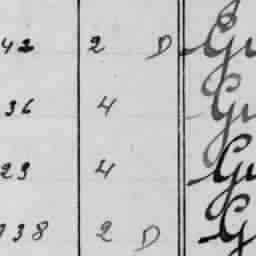 42 2 D Gu
36 4 Gu
23 4 Gu
738 2 D G